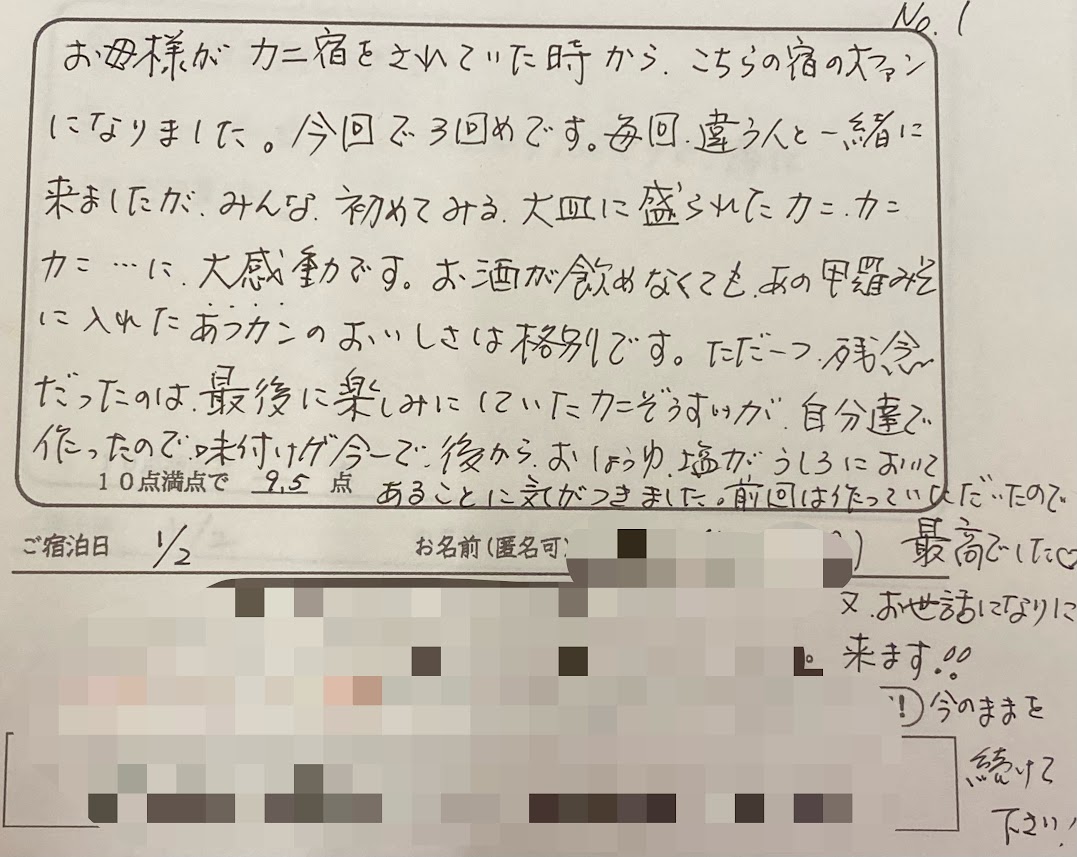 No. 1
お母様がカニ宿をされていた時から、こちらの宿の大ファン
になりました。今回で3回めです。毎回、違う人と一緒に
来ましたが、みんな、初めてみる、大皿に盛られたカニ、カニ
カニ…に、大感動です。お酒が飲めなくても、あの甲羅みそ
に入れたあつカンのおいしさは格別です。ただ一つ、残念
だったのは、最後に楽しみにしていたカニぞうすいが、自分達で
作ったので、味付けが今一で、後から、おしょうゆ、塩がうしろにおいて
あることに気がつきました。前回は作っていただいたので
10点満点で 9.5 点
最高でした♡
ご宿泊日 1/2
お名前(匿名可)
又、お世話になりに
来ます!!
今のままを
続けて
下さい!